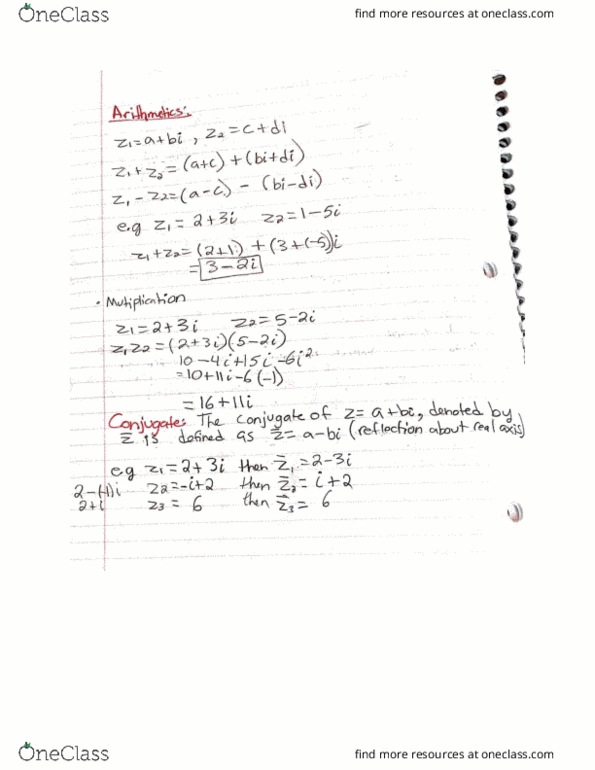 OneClass find more resources at oneclass.com
Arithmetics:
z₁=a+bi , z₂=c+di
z₁+z₂=(a+c)+(bi+di)
z₁-z₂=(a-c) - (bi-di)
e.g z₁=2+3i z₂=1-5i
z₁+z₂=(2+1)+(3+(-5))i
=3-2i
• Mutiplication
z₁=2+3i z₂=5-2i
z₁z₂=(2+3i)(5-2i)
10-4i+15i-6i²
=10+11i-6(-1)
=16+11i
Conjugate: The conjugate of z=a+bi, denoted by
z̄ is defined as z̄=a-bi (reflection about real axis)
e.g z₁=2+3i then z̄₁=2-3i
2-(-1)i z₂=-i+2 then z̄₂=i+2
2+i z₃=6 then z̄₃=6
OneClass find more resources at oneclass.com